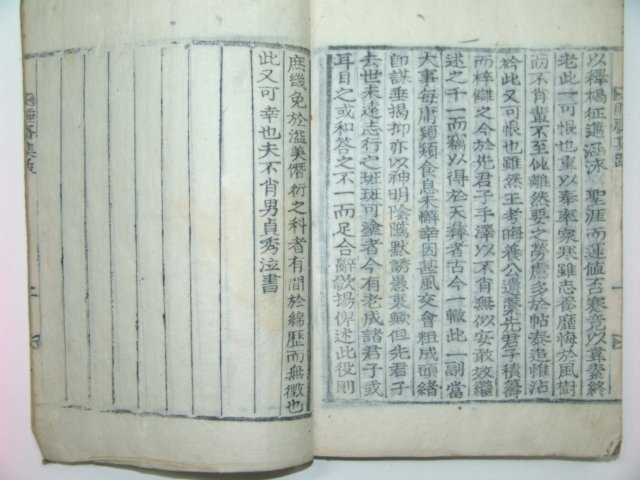 以釋褐征進涵泳聖涯而運値否寒竟以韋素終
老此一可恨也重以奉率窮寒雖志養靡悔於風樹
而不肖輩不似離然要之勞慮多於帖泰追惟沾
衿此又可恨也雖然王考晦養公遺襲先君子積籌
而梓讎之今於先君子手澤以不肖無似妄敢放繼
述之千一而竊以得於天彜者古今一轍此一副當
大事每庸顓顓食息未懈幸因甚風交會粗成頭緖
卽謀垂揭抑亦以神明陰隲默誘愚衷歟但先君子
去世未遠志行之斑斑可塗者今有老成諸君子或
耳目之或和答之不一而足合辭歆揚俾述此役則
庶幾免於溢美僭衍之科者有間於綿歷而無徵也
此又可幸也夫不肖男貞秀泣書